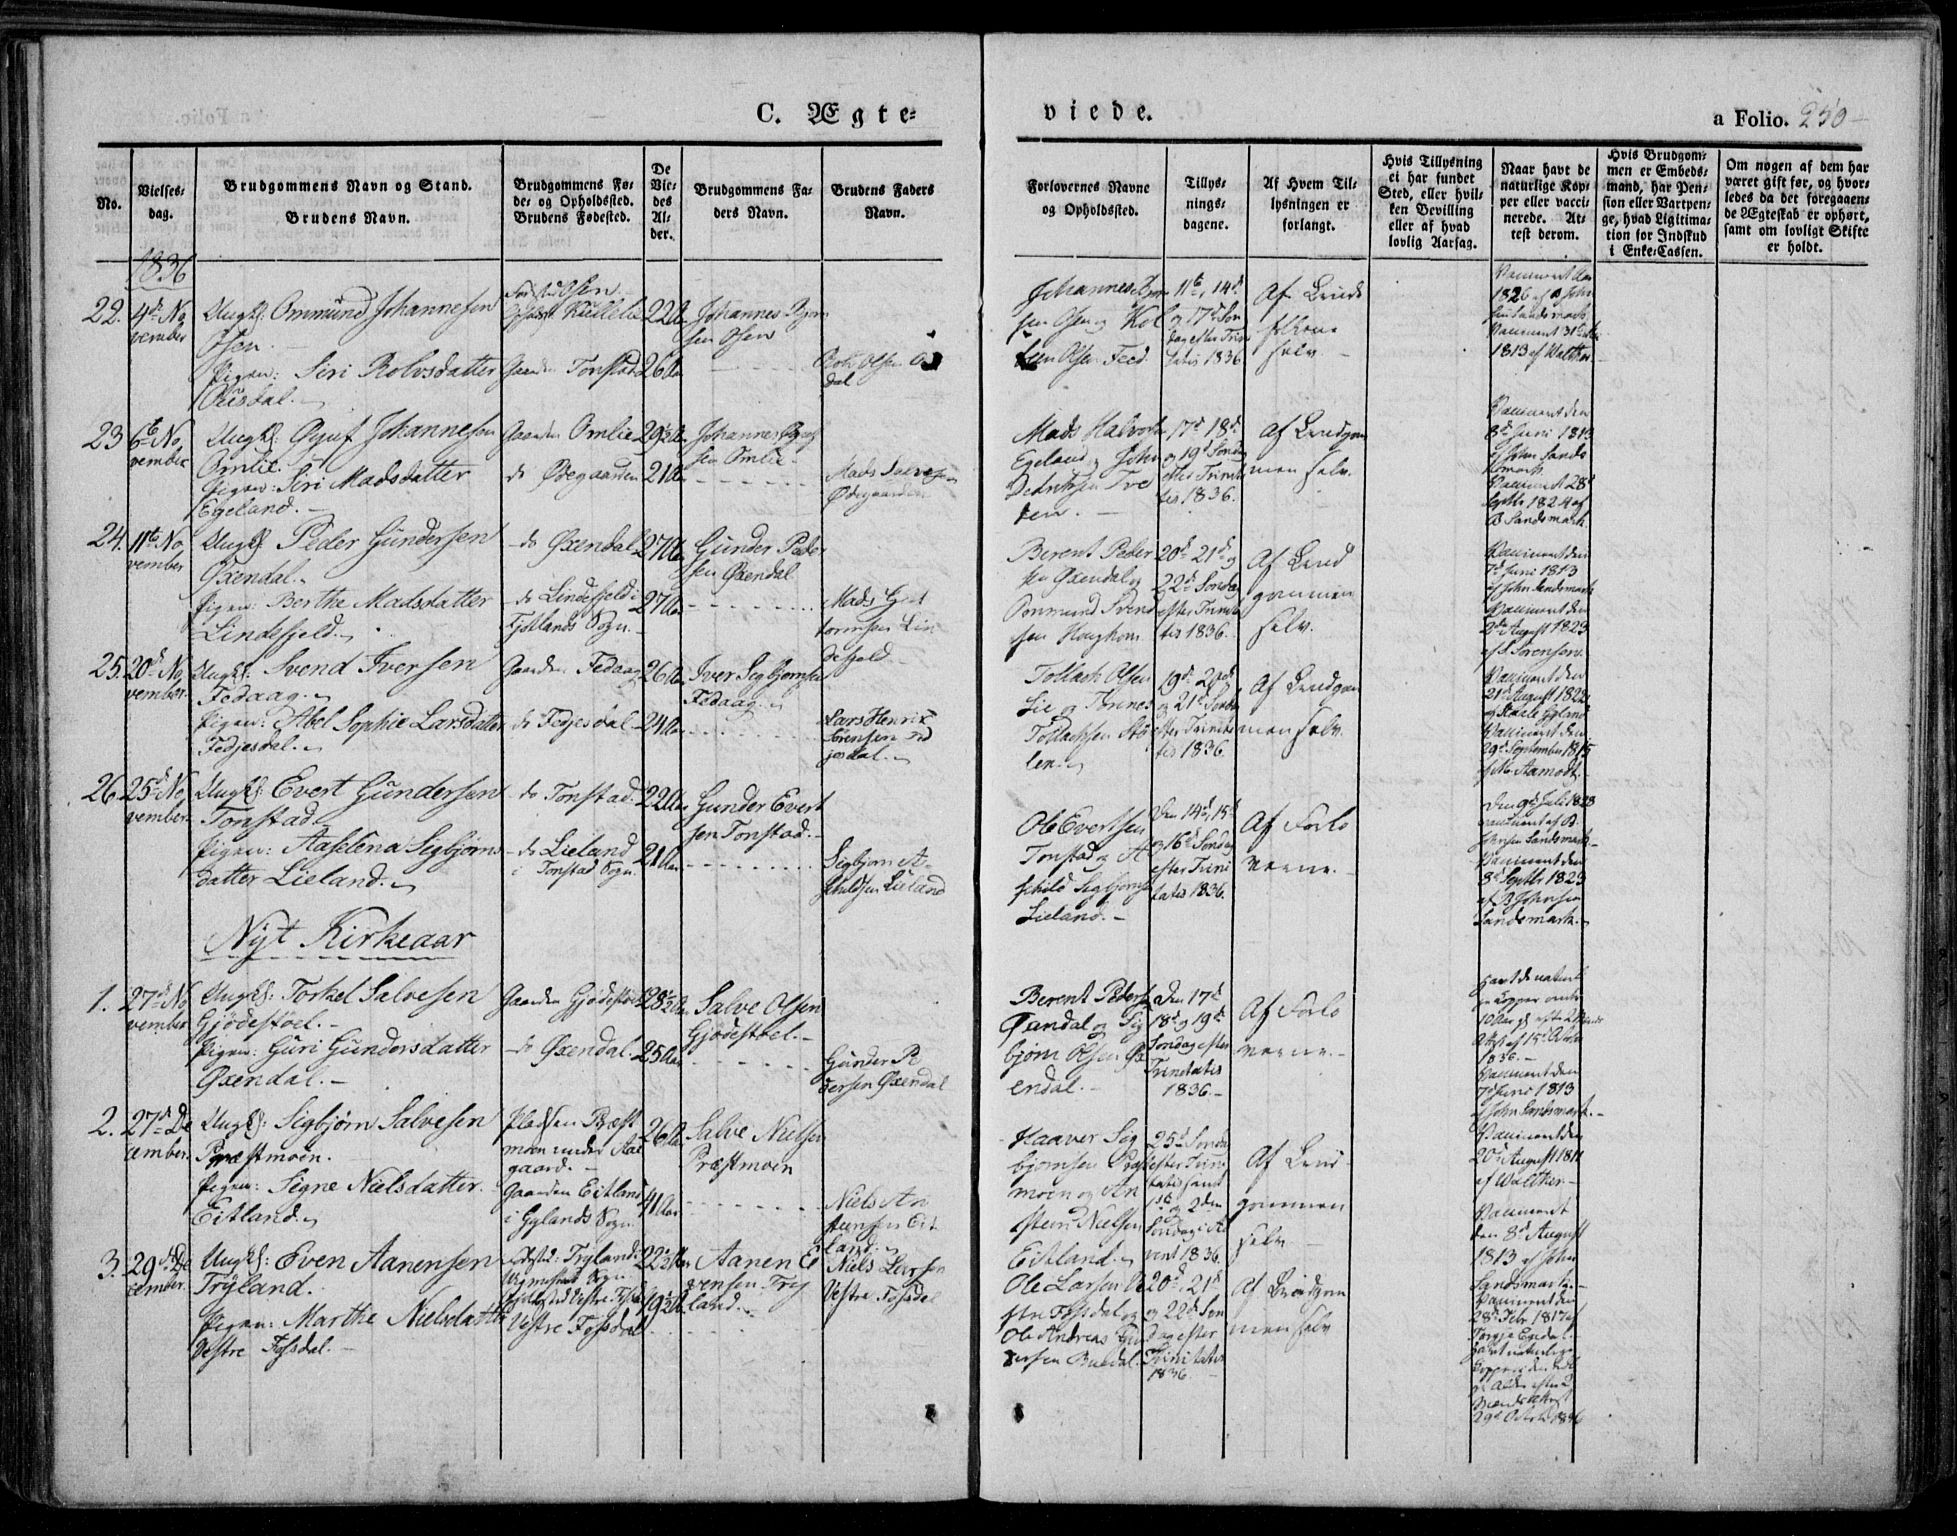 C. Ægte-
viede.
a Folio. 250
No.
Vielses-
dag.
Brudgommens Navn og Stand.
Brudens Navn.
Brudgommens Fø-
de- og Opholdssted.
Brudens Fødested.
De
Vie-
des
Al-
der.
Brudgommens Fa-
ders Navn.
Brudens Faders
Navn.
Forlovernes Navne
og Opholdssted.
Tillys-
nings-
dagene.
Af Hvem Til-
lysningen er
forlangt.
Hvis Tillysning
ei har fundet
Sted, eller hvil-
ken Bevilling
eller af hvad
lovlig Aarsag.
Naar havt de
naturlige Kop-
per eller vacci-
nerede. At-
test derom.
Hvis Brudgom-
men er Embeds-
mand, har Pen-
sion eller Vartpen-
ge, hvad Ligitima-
tion for Indskud
i Enke-Cassen.
Om nogen af dem har
været gift før, og hvor-
ledes da det foregaaen-
de Ægteskab er ophørt,
samt om lovligt Skifte
er holdt.
1836
22. 4de No
vember
Ungk: Ommund Johannesen
Osen.
Pigen: Siri Rolvsdatter
Ousdal.
Gaarden Tonstad
22 Aar
26 Aar
Johannes
sen Osen
dal
Osen og
sen Osen Feed
11te, 14de
og 17de Søn
dag efter Trini
tatis 1836
selv
1826 af
1813 af Walther
23 6te No
vember
Ungk: Johannesen
Omlie.
Pigen: Siri Madsdatter
Egeland.
Gaarden Omlie
do Ødegaarden
29½ Aar
21 Aar
Johannes
sen Omlie
Mads Salvesen
Ødegaarden
Mads Halvors
Egeland, John
17de 18de
og 19de Søndag
efter Trinita
tis 1836.
Af Brudgom
men selv.
Vaccineret den
8de Juni 1813
af John Sands
mark.
Vaccineret 28de
Septbr 1824 af
Sandsmark
24. 11te No
vember
Ungk: Peder Gundersen
Øxendal.
Pigen: Berthe Madsdatter
Lindefjeld.
do Øxendal
do Lindefjeld i
Fjotlands Sogn
27 Aar
27 Aar
Gunder Peder
sen Øxendal
Mads
tormsen Lin
defjeld
Berent Peder
sen Øxendal og
Ommund Svend
sen Houghom
20de 21de og
22de Søndag
efter Trinita
tis 1836.
Af Brud
gommen
selv.
Vaccineret den
7de Juni 1813
af John Sandsmark
Vaccineret den
2den August 1823
af S. Sørensen.
25. 20de No
vember.
Ungk: Svend Iversen
Fedaag.
Pigen: Abel Sophie Larsdatter
Fedjesdal.
Gaarden Fedaag
do Fedjesdal
26 Aar
24 Aar
Iver Sigbjørnsen
Fedaag.
Lars Henrik
Sørensen Fed
jesdal.
Tollach Olsen
Lie og Tønnes
Tollachsen Stø
len.
19de 20de
og 21de Søndag
efter Trinita
tis 1836
Af Brudgom
men selv.
Vaccineret den
21de August 1822
Vaccineret den
29de September 1815
af N. Aamodt.
26. 25de No
vember.
Ungk: Evert Gundersen
Tonstad.
Pigen: Aaselena Sigbjørns
datter Lieland.
do Tonstad.
do Lieland
i Tonstad Sogn.
22 Aar
21 Aar
Gunder Evert
sen Tonstad.
Sigbjørn A-
schildsen Lieland
Ole Evertsen
Tonstad og A
schild Sigbjørnsen
Lieland.
Den 14de, 15de
og 16de Søndag
efter Trini
tatis 1836.
Af Forlo
verne.
Den 9de Juli 1823
vaccineret af B.
Johnsen Sandsmark
Vaccineret den
8de Septbr 1823
af B. Johnsen
Sandsmark.
Nyt Kirkeaar
1. 27de No
vember
Ungk: Torkel Salvesen
Gjødestøel.
Pigen: Guri Gundersdatter
Øxendal.
Gaarden Gjødestøel
do Øxendal.
28½ Aar
25 Aar
Salve Olsen
Gjødestøel.
Gunder Pe
dersen Øxendal
Berent Peders
Øxendal og Sig
bjørn Olsen Øx
endal.
Den 17de
18de og 19de
Søndag efter
Trinitatis
1836.
Af Forlo
verne.
Havt de naturl
1836.
Vaccineret den
7de Juni 1813
af John Sandsmark.
2. 27de De
cember.
Ungk: Sigbjørn Salvesen
Præstmoen.
Pigen: Signe Nielsdatter.
Eitland.
Pladsen Præst
moen under Aa
gaard.
Gaarden Eitland
i Gylands Sogn
26 Aar
41 Aar
Salve Nielsen
Præstmoen
Niels An
stensen Eit
land.
Haaver Sig
bjørnsen Præst
moen og An
sten Nielsen
Eitland.
25de Søndag
efter Trini
tatis samt
1ste og 2den
Søndag i Ad
vent 1836
Af Brud
gommen
selv
Vaccineret den
20de August 1811
af Walther
Vaccineret
den 8de August
1813 af John
Sandsmark.
3. 29de De
cember.
Ungk: Even Aanensen
Tryland.
Pigen: Marthe Nielsdatter
Vestre Fossdal.
Fødested: Tryland i
Sogn
Vestre Fossdal
22½ Aar
19½ Aar
Aanen E
vensen Try
land.
Niels Larsen
Vestre Fossdal
Ole Larsen Ve
stre Fossdal og
Ole Andreas Gun
dersen Buedal.
20de, 21de
og 22de Søn
dag efter
Trinitatis
1836.
Af Brudgom
men selv
Vaccineret den
28de Febr 1817 af
Havt naturlige
29de Octobr 1836